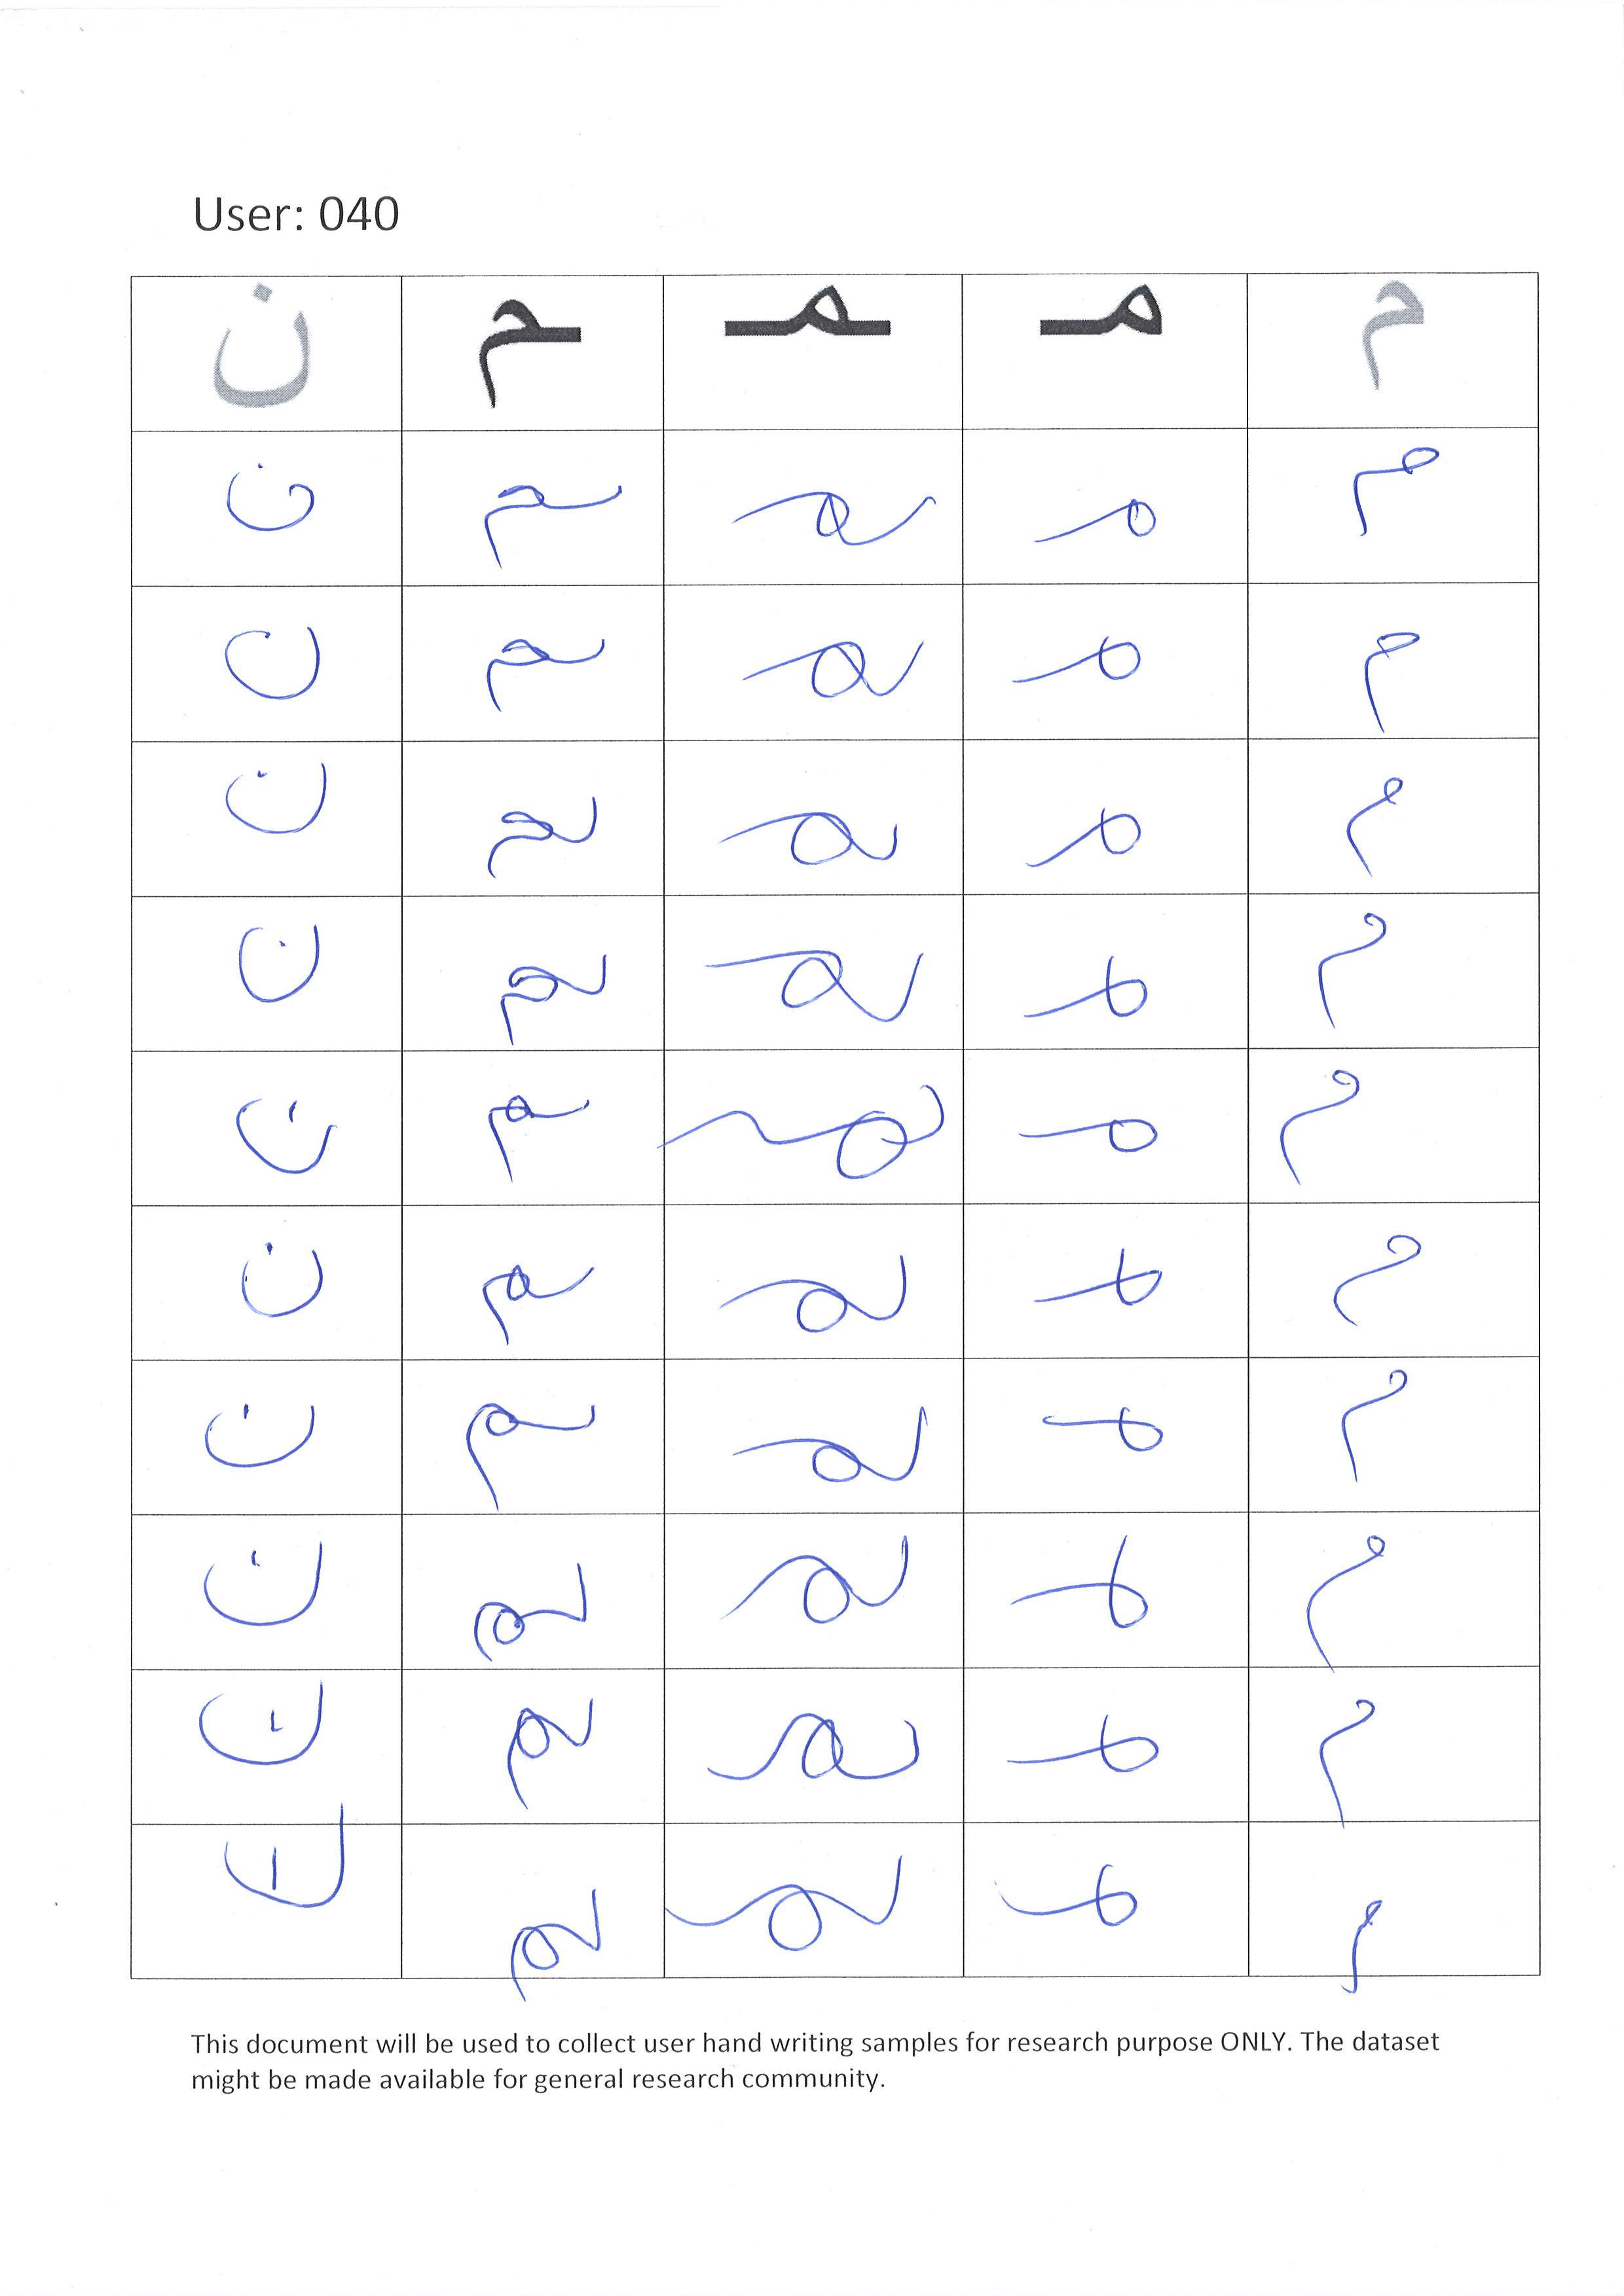 User: 040
م مـ ـمـ ـم ن
م مـ ـمـ ـم ن
م مـ ـمـ ـم ن
م مـ ـمـ ـم ن
م مـ ـمـ ـم ن
م مـ ـمـ ـم ن
م مـ ـمـ ـم ن
م مـ ـمـ ـم ن
م مـ ـمـ ـم ن
م مـ ـمـ ـم ن
م مـ ـمـ ـم ن
This document will be used to collect user hand writing samples for research purpose ONLY. The dataset
might be made available for general research community.